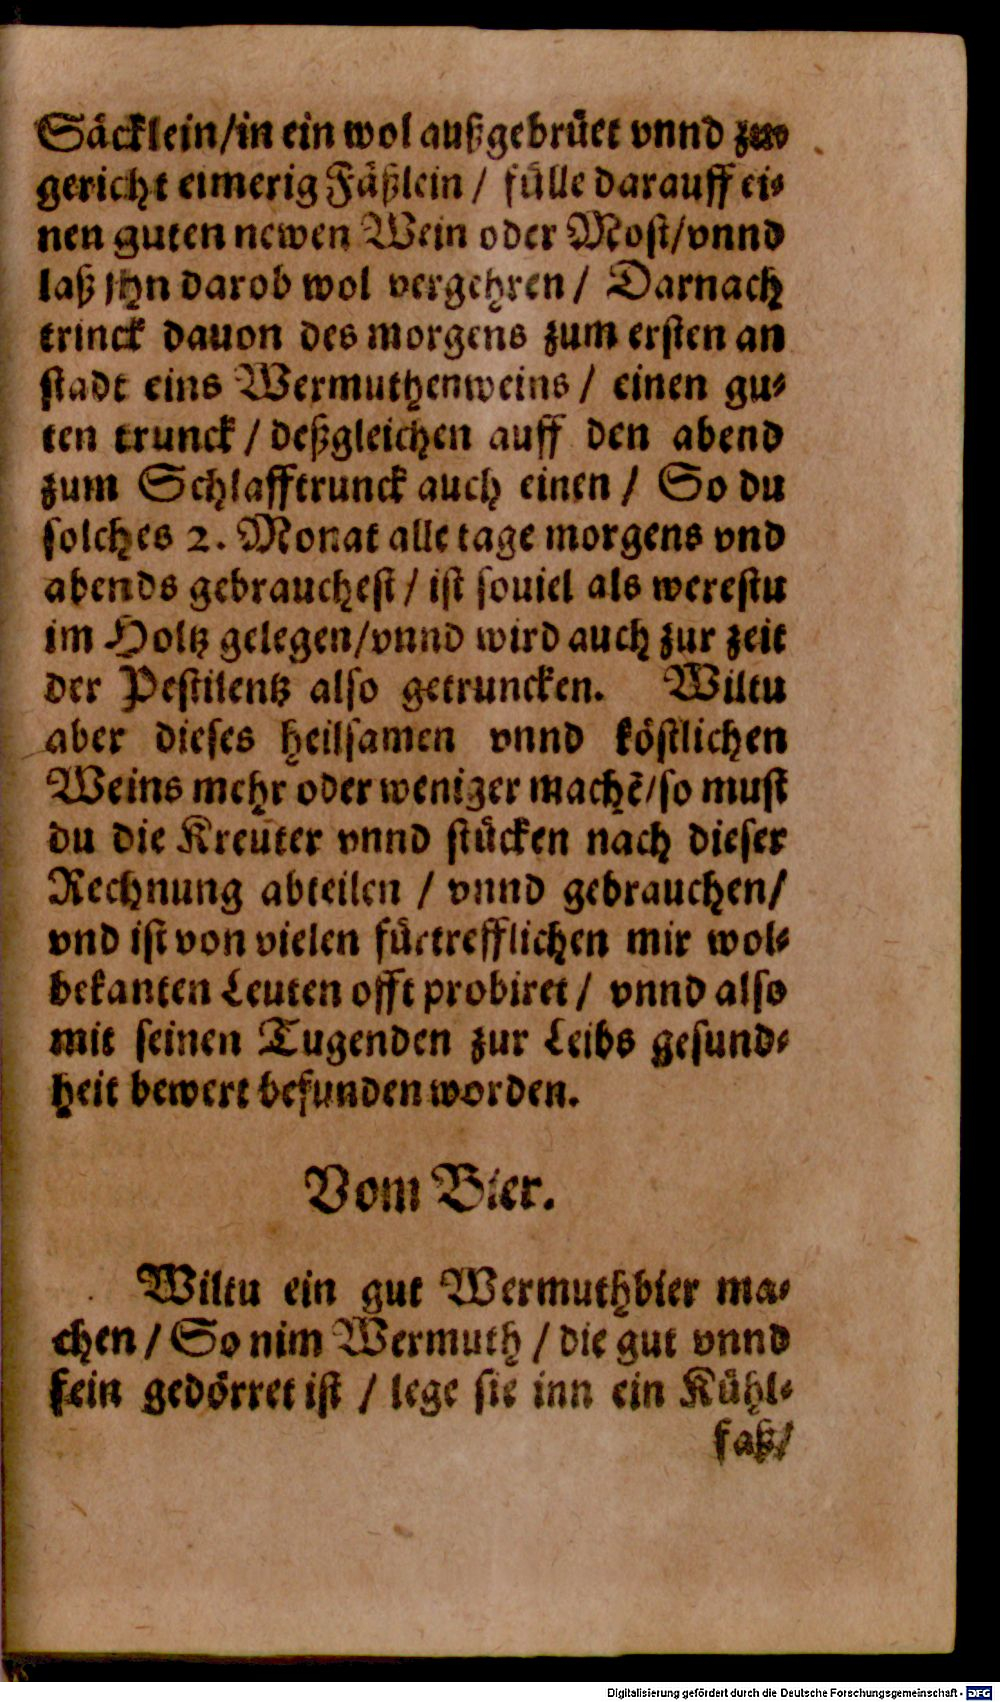 Säcklein/in ein wol außgebrüet vnnd zu⸗
gericht eimerig Fäßlein / fülle darauff ei⸗
nen guten newen Wein oder Most/vnnd
laß jhn darob wol vergehren / Darnach
trinck dauon des morgens zum ersten an
stadt eins Wermuthenweins / einen gu⸗
ten trunck / deßgleichen auff den abend
zum Schlafftrunck auch einen / So du
solches 2. Monat alle tage morgens vnd
abends gebrauchest / ist souiel als werestu
im Holtz gelegen/vnnd wird auch zur zeit
der Pestilentz also getruncken. Wiltu
aber dieses heilsamen vnnd köstlichen
Weins mehr oder weniger machē/so must
du die Kreuter vnnd stücken nach dieser
Rechnung abteilen / vnnd gebrauchen/
vnd ist von vielen fürtrefflichen mir wol⸗
bekanten Leuten offt probiret / vnnd also
mit seinen Tugenden zur Leibs gesund⸗
heit bewert befunden worden.
Vom Bier.
Wiltu ein gut Wermuthbier ma⸗
chen / So nim Wermuth / die gut vnnd
fein gedörret ist / lege sie inn ein Kühl⸗
faß/
Digitalisierung gefördert durch die Deutsche Forschungsgemeinschaft - DFG